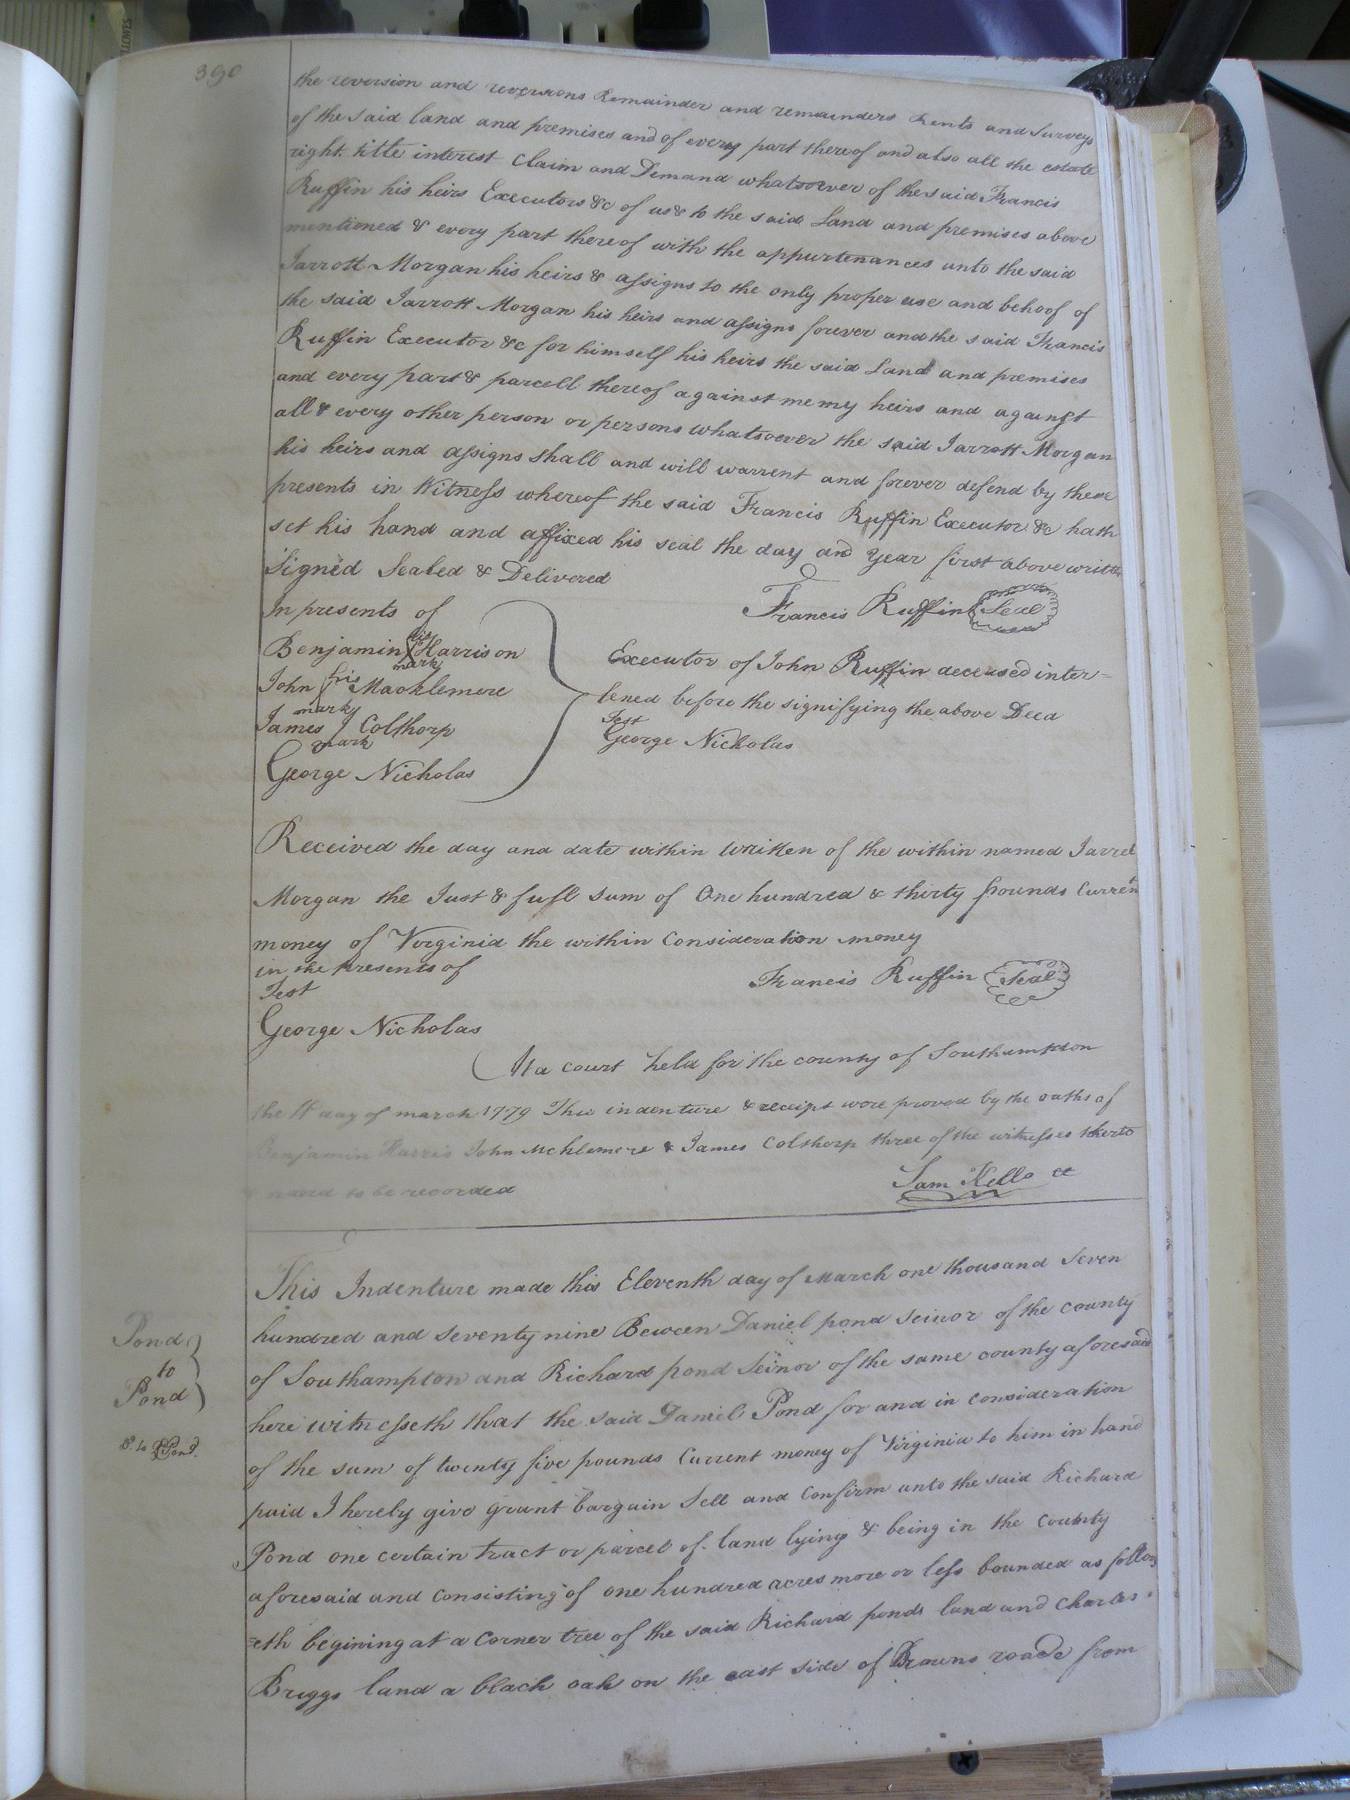 390
the reversion and reversions Remainder and remainders Rents and Surveys
of the said land and premises and of every part thereof and also all the estate
right title interest Claim and Demand whatsoever of the said Francis
Ruffin his heirs Executors &c of us & to the said Land and premises above
mentioned & every part thereof with the appurtenances unto the said
Jarrott Morgan his heirs & assigns to the only proper use and behoof of
the said Jarrott Morgan his heirs and assigns forever and the said Francis
Ruffin Executor &c for himself his heirs the said Land and premises
and every part & parcell thereof against me my heirs and against
all & every other person or persons whatsoever the said Jarrott Morgan
his heirs and assigns shall and will warrent and forever defend by these
presents in Witness whereof the said Francis Ruffin Executor &c hath
set his hand and affixed his seal the day and year first above written
Signed Sealed & Delivered
In presents of
Francis Ruffin Seal
Benjamin his Harrison
mark
Executor of John Ruffin deceased inter=
John his Macklemere
mark
lened before the signifying the above Deed
James J Colthorp
mark
Test
George Nicholas
George Nicholas
Received the day and date within written of the within named Jarrel
Morgan the Just & full sum of One hundred & thirty pounds Current
money of Virginia the within Consideration money
in the presents of
Francis Ruffin Seal
Test
George Nicholas
At a court held for the county of Southamton
the 11 day of march 1779 This indenture & receipt were proved by the oaths of
Benjamin Harris John McKlemere & James Colthorp three of the witnesses thereto
to be recorded
Sam Kello ct
This Indenture made this Eleventh day of March one thousand seven
hundred and seventy nine Beween Daniel pond seinor of the county
of Southampton and Richard pond Seinor of the same county aforesaid
here witnesseth that the said Daniel Pond for and in consideration
Pond
to
Pond
of the sum of twenty five pounds Current money of Virginia to him in hand
paid I hereby give grant bargain Sell and Confirm unto the said Richard
Pond one certain tract or parcel of land lying & being in the County
aforesaid and Consisting of one hundred acres more or less bounded as follow
=eth begining at a Corner tree of the said Richard ponds land and Charles
Briggs land a black oak on the east side of Browns roade from